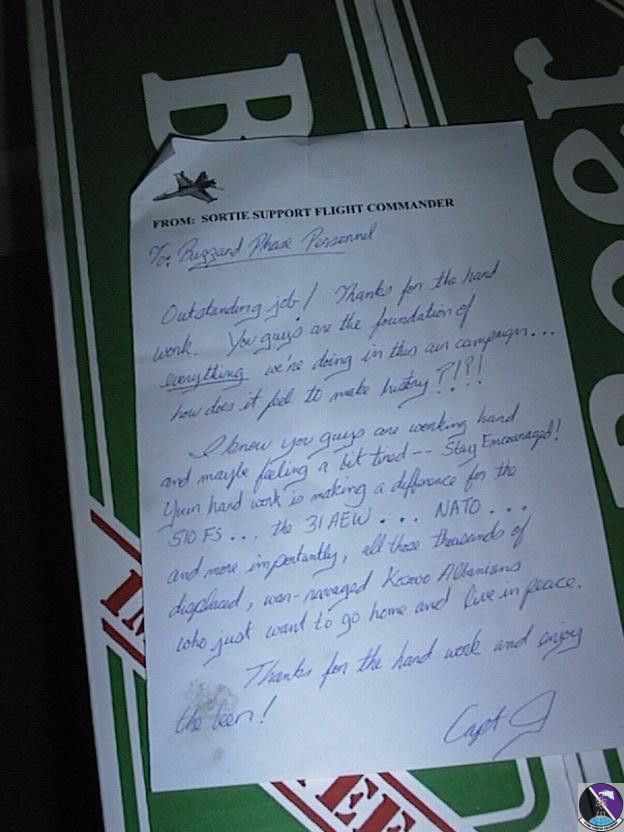 B
er
FROM: SORTIE SUPPORT FLIGHT COMMANDER
To: Buzzard Phase Personnel
Outstanding job! Thanks for the hard
work. You guys are the foundation of
everything we're doing in this air campaign...
how does it feel to make history ?!?!
I know you guys are working hard
and maybe feeling a bit tired -- Stay Encouraged!
Your hard work is making a difference for the
510 FS... the 31 AEW.... NATO...
and more importantly, all those thousands of
displaced, war-ravaged Kosovo Albanians
who just want to go home and live in peace.
Thanks for the hard work and enjoy
the beer!
Capt J